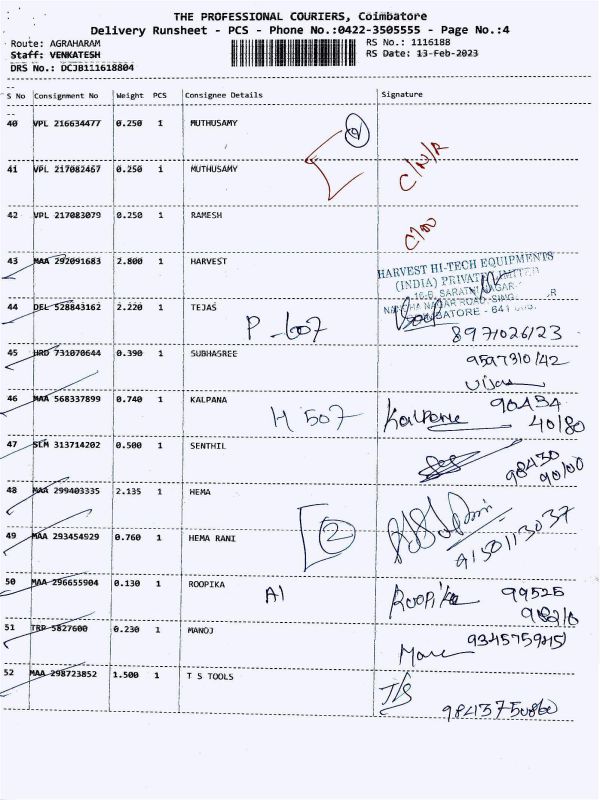 THE PROFESSIONAL COURIERS, Coimbatore
Delivery Runsheet - PCS - Phone No.:0422-3505555 - Page No.:4
Route: AGRAHARAM
RS No.: 1116188
Staff: VENKATESH
RS Date: 13-Feb-2023
DRS No.: DCJB111618804
S No Consignment No Weight PCS Consignee Details Signature
40 VPL 216634477 0.250 1 MUTHUSAMY
2
41 VPL 217082467 0.250 1 MUTHUSAMY
C/N/R
42 VPL 217083079 0.250 1 RAMESH
43 MAA 292091683 2.800 1 HARVEST
HARVEST HI-TECH EQUIPMENTS
(INDIA) PRIVATE LIMITED
44 DEL 528843162 2.220 1 TEJAS
P-607
8971026123
45 HRD 731070644 0.390 1 SUBHASREE
9597310142
46 MAA 568337899 0.740 1 KALPANA
H 507
Kalpana 90434
40180
47 SLM 313714202 0.500 1 SENTHIL
98430
90100
48 MAA 299403335 2.135 1 HEMA
49 MAA 293454929 0.760 1 HEMA RANI
2
9150113037
50 MAA 296655904 0.130 1 ROOPIKA
A1
Roopika 99525
51 TRP 5827600 0.230 1 MANOJ
52 MAA 298723852 1.500 1 T S TOOLS
T/S